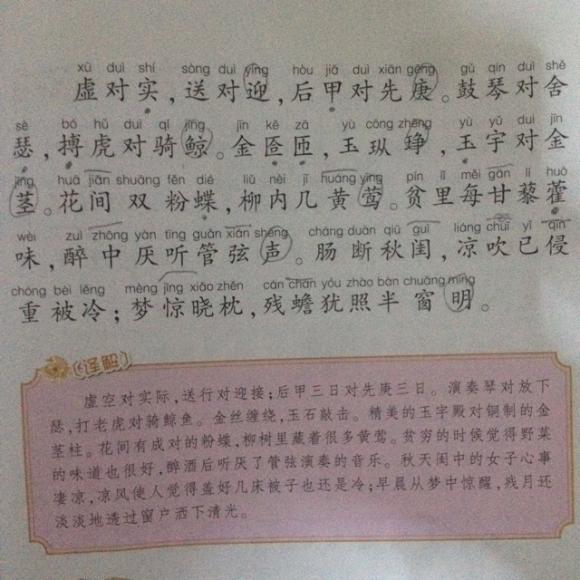 xū duì shí sòng duì yíng hòu jiǎ duì xiān gēng gǔ qín duì shě
虚对实，送对迎，后甲对先庚。鼓琴对舍
sè bó hǔ duì qí jīng jīn kē zā yù cóng zhēng yù yǔ duì jīn
瑟，搏虎对骑鲸。金匼匝，玉铮，玉宇对金
jīng huā jiān shuāng fěn dié liǔ nèi jǐ huáng yīng pín lǐ měi gān lí huò
茎。花间双粉蝶，柳内几黄莺。贫里每甘藜藿
wèi zuì zhōng yàn tīng guǎn xián shēng cháng duàn qiū guī liáng chuī yǐ qīn
味，醉中厌听管弦声。肠断秋闺，凉吹已侵
chóng bèi lěng mèng jīng xiǎo zhěn cán chán yóu zhào bàn chuāng míng
重被冷；梦惊晓枕，残蟾犹照半窗明。
译解
虚空对实际，送行对迎接；后甲三日对先庚三日。演奏琴对放下
瑟，打老虎对骑鲸鱼。金丝缠绕，玉石敲击。精美的玉宇殿对铜制的金
茎柱。花间有成对的粉蝶，柳树里藏着很多黄莺。贫穷的时候觉得野菜
的味道也很好，醉酒后听厌了管弦演奏的音乐。秋天闺中的女子心事
凄凉，凉风使人觉得盖好几床被子也还是冷；早晨从梦中惊醒，残月还
淡淡地透过窗户洒下清光。